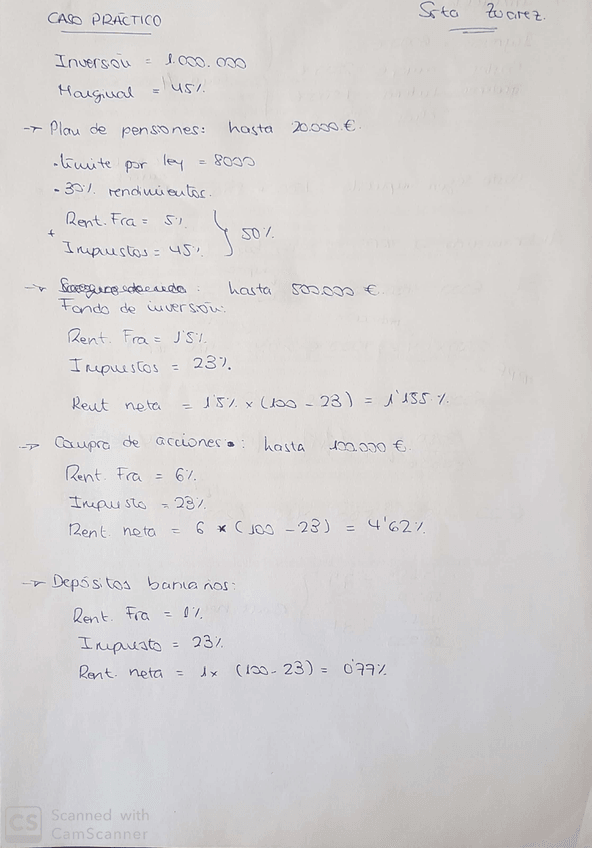 CASO PRÁCTICO
Srta Zuarez.
Inversión = 1.000.000
Marginal = 45%
→ Plan de pensiones: hasta 20.000 €.
· límite por ley = 8000
- 30% rendimientos.
Rent. Fra = 5%
+ } 50%
Impuestos = 45%
→ : hasta 500.000 €
Fondo de inversión:
Rent. Fra = 1'5%
Impuestos = 23%.
Rent neta = 1'5% x (100 - 23) = 1'155 %.
→ Compra de acciones: hasta 100.000 €
Rent. Fra = 6%
Impuesto = 23%
Rent. neta = 6 x (100 - 23) = 4'62%
→ Depósitos bancarios:
Rent. Fra = 1%
Impuesto = 23%
Rent. neta = 1x (100 - 23) = 0'77%
CS Scanned with
CamScanner